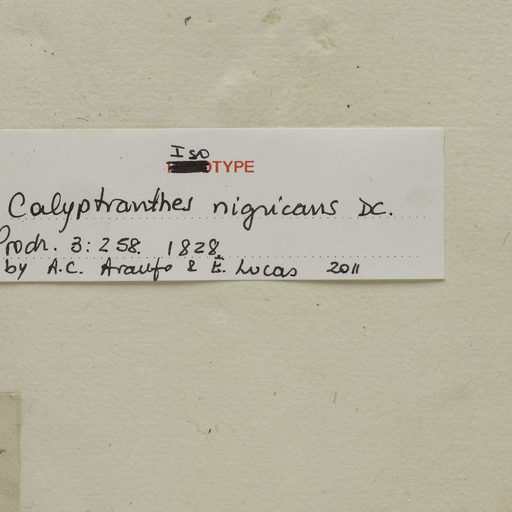 Iso
TYPE
Calyptranthes nigricans DC.
Prodr. 3: 258. 1828.
by A.C. Araujo & E. Lucas 2011